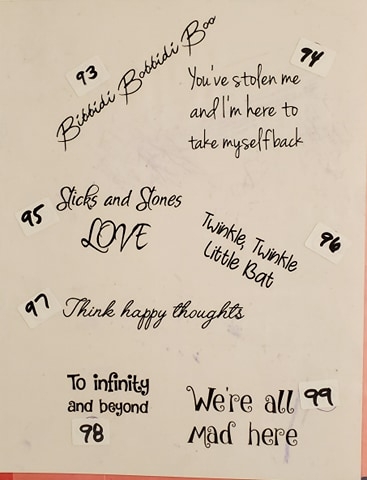 93
Bibbidi Bobbidi Boo
94
You've stolen me
and I'm here to
take myself back
95
Sticks and Stones
LOVE
96
Twinkle, Twinkle
Little Bat
97
Think happy thoughts
To infinity
and beyond
98
We're all
mad here
99